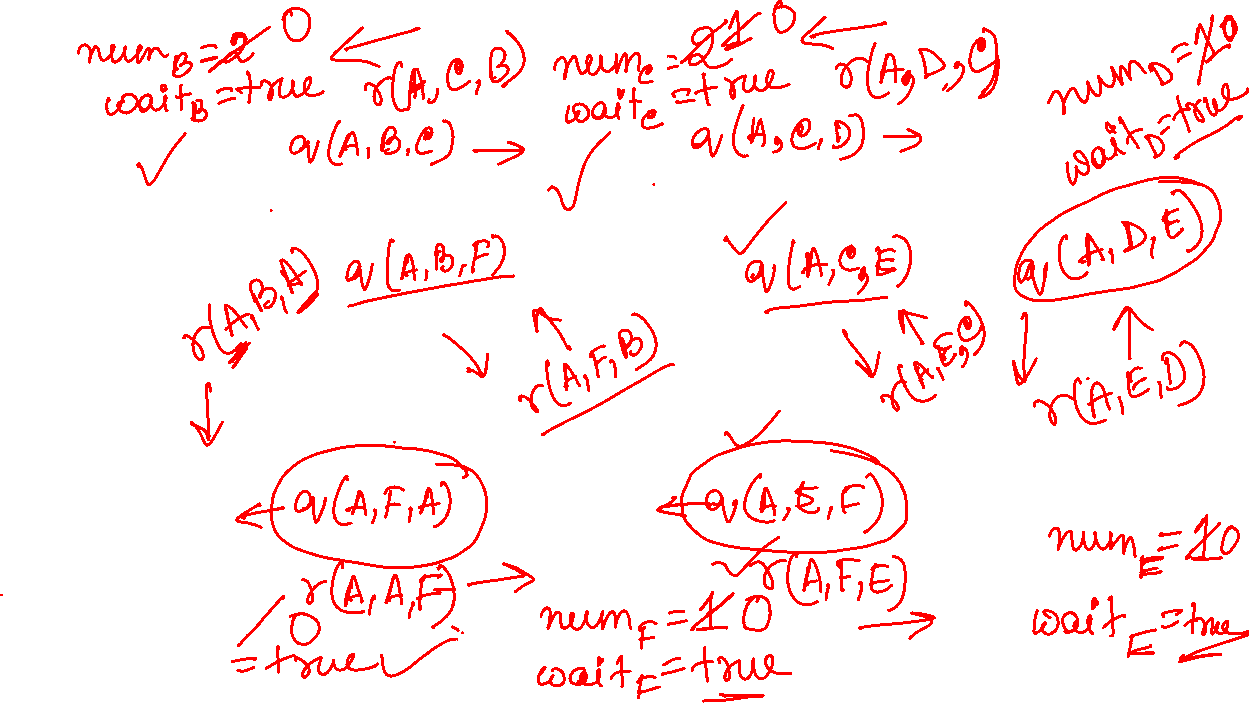 num_B = 2 0
wait_B = true
r(A, C, B)
q(A, B, C) →
num_C = 2 1 0
wait_C = true
r(A, D, C)
q(A, C, D) →
num_D = 1 0
wait_D = true
r(A, B, A)
q(A, B, F)
r(A, F, B)
q(A, C, E)
r(A, E, C)
q(A, D, E)
r(A, E, D)
q(A, F, A)
r(A, A, F)
0
= true
q(A, E, F)
r(A, F, E)
num_F = 1 0
wait_F = true
num_E = 1 0
wait_E = true